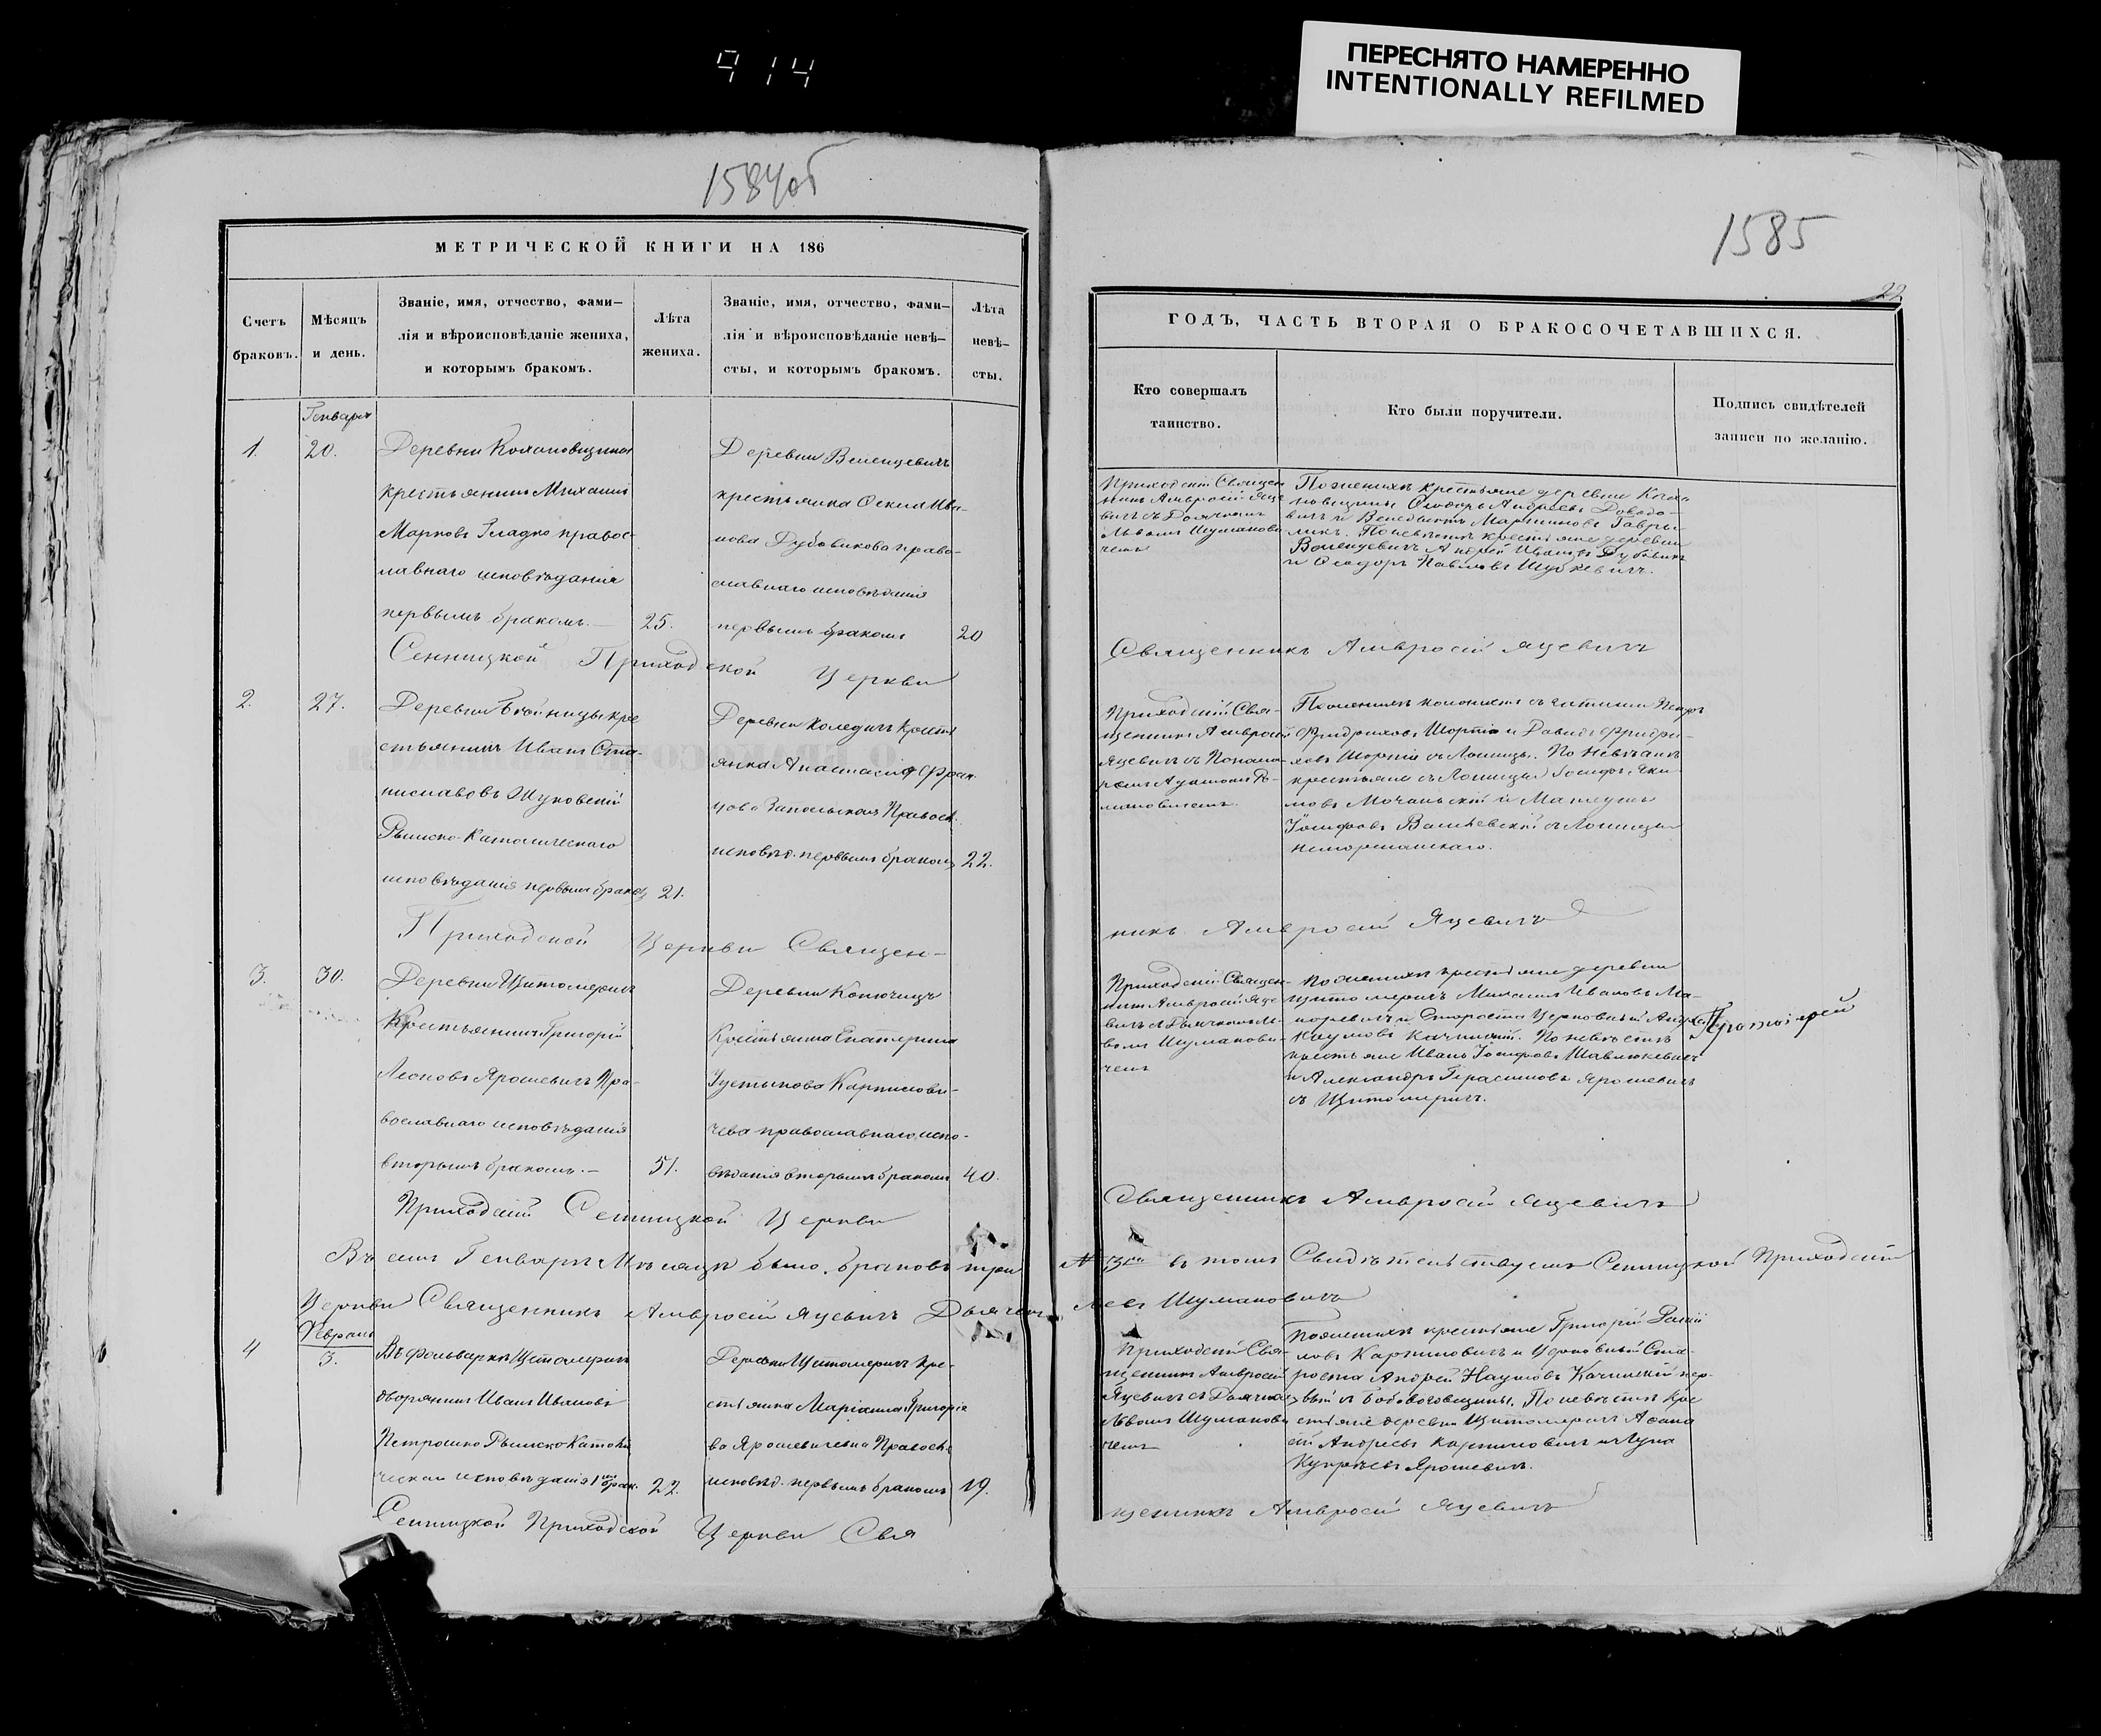 914
ПЕРЕСНЯТО НАМЕРЕННО
INTENTIONALLY REFILMED
1584об
МЕТРИЧЕСКОЙ КНИГИ НА 186
Счетъ
браковъ.
Мѣсяцъ
и день.
Званіе, имя, отчество, фами-
лія и вѣроисповѣданіе жениха,
и которымъ бракомъ.
Лѣта
жениха.
Званіе, имя, отчество, фами-
лія и вѣроисповѣданіе невѣ-
сты, и которымъ бракомъ.
Лѣта
невѣ-
сты.
Генваря
1.
20.
Деревни
крестьянинъ Михаилъ
Марковъ Гладко правос-
лавнаго исповѣданія
первымъ бракомъ.—
25.
Деревни
крестьянка Ива-
нова Дубовикова право-
славнаго исповѣданія
первымъ бракомъ
20
Сенницкой Приходской Церкви
2.
27.
Деревни кре
стьянинъ Иванъ Ста-
ниславовъ Жуковскій
Римско-Католическаго
исповѣданія первым брако
21.
Деревни Колядичъ крестя
янка Анастасія Фран
цова Запольская Правосл.
исповѣд. первымъ бракомъ
22.
Приходской Церкви Священ-
3.
30.
Деревни Щитомеричъ
Крестьянинъ Григорій
Леоновъ Ярошевичъ Пра-
вославнаго исповѣданія
вторымъ бракомъ.—
51.
Деревни Копючицъ
Крестьянка Екатерина
Устынова Карпилови-
чева православнаго испо-
вѣданія вторымъ бракомъ
40.
Приходскій Сенницкой Церкви
Въ семъ Генварѣ Мѣсяцѣ было браковъ три
Церкви Священникъ Амвросій Яцевичъ Дьячекъ
4
3.
Въ фольваркѣ Щитомеричъ
дворянинъ Иванъ Ивановъ
Петрашко Римско Католи
ческаи исповѣданія 1мъ брак.
22.
Деревни Щитомеричъ кре-
стьянка Маріанна Григоріе
ва Ярошевичевна Правосл.
исповѣд. первымъ бракомъ
19.
Сенницкой Приходской Церкви Свя
1585
22
ГОДЪ, ЧАСТЬ ВТОРАЯ О БРАКОСОЧЕТАВШИХСЯ.
Кто совершалъ
таинство.
Кто были поручители.
Подпись свидѣтелей
записи по желанію.
Приходскій Священ
никъ Амвросій Яце
вичъ съ Дьячкомъ
Львомъ Шуманови
чемъ
По женихѣ крестьяне деревни Коха
новщины Ѳеодоръ Андреевъ
и Венедиктъ Мартиновъ Гаври-
ликъ. По невѣстѣ крестьяне деревни
Андрей Ивановъ Дубовикъ
и Ѳеодоръ Павловъ
Священникъ Амвросій Яцевичъ
Приходскій Свя-
щенникъ Амвросій
Яцевичъ съ Понама-
ремъ Адамомъ Ро-
мановичемъ.
По женихѣ колонисты
Фридриховъ Шортъ и Давидъ Фридри-
ховъ съ Лошицы. По невѣстѣ
крестьяне съ Лошицы Іосифъ Яки-
мовъ Мочаньскій и Матеушъ
Іосифовъ Василевскій съ Лошицы

никъ Амвросій Яцевичъ
Приходскій Священ-
никъ Амвросій Яце
вичъ съ Дьячкомъ Ль-
вомъ Шуманови-
чемъ
По женихѣ крестьяне деревни
Щитомеричъ Михаилъ Ивановъ Ма-
каревичъ и Староста Церковный Андрей
Наумовъ Качинскій. По невѣстѣ
крестьяне Иванъ Іосифовъ Шавлюкевичъ
и Александръ Герасимовъ Ярошевичъ
съ Щитомеричъ.
Протоіерей
Священникъ Амвросій Яцевичъ
№ 3й въ томъ Свидѣтельствуемъ Сенницкой Приходской
Левъ Шумановичъ
Приходскій Свя-
щенникъ Амвросій
Яцевичъ съ Дьячко
Львомъ Шуманови
чемъ
По женихѣ крестьяне Григорій
Карпиловичъ и Церковный Ста-
роста Андрей Наумовъ Качинскій пер-
вый съ Бабоволовщины. По невѣстѣ кре
стьяне деревни Щитомеричъ Аѳана
сій Андреевъ Карпиловичъ и Лука
Ярошевичъ.
щенникъ Амвросій Яцевичъ